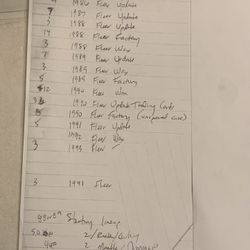 1986 Fleer Update
7 1987 Fleer Update
7 1988 Fleer Update
14 1988 Fleer Factory
3 1988 Fleer Wax
7 1989 Fleer Update
3 1989 Fleer Wax
5 1989 Fleer Factory
12 1990 Fleer Wax
1990 Fleer Update Trading Cards
5 1990 Fleer Factory (unopened case)
5 1991 Fleer Update
1992 Fleer Wax
3 1993 Fleer
3 1991 Fleer
Starting Lineup
50 2
2